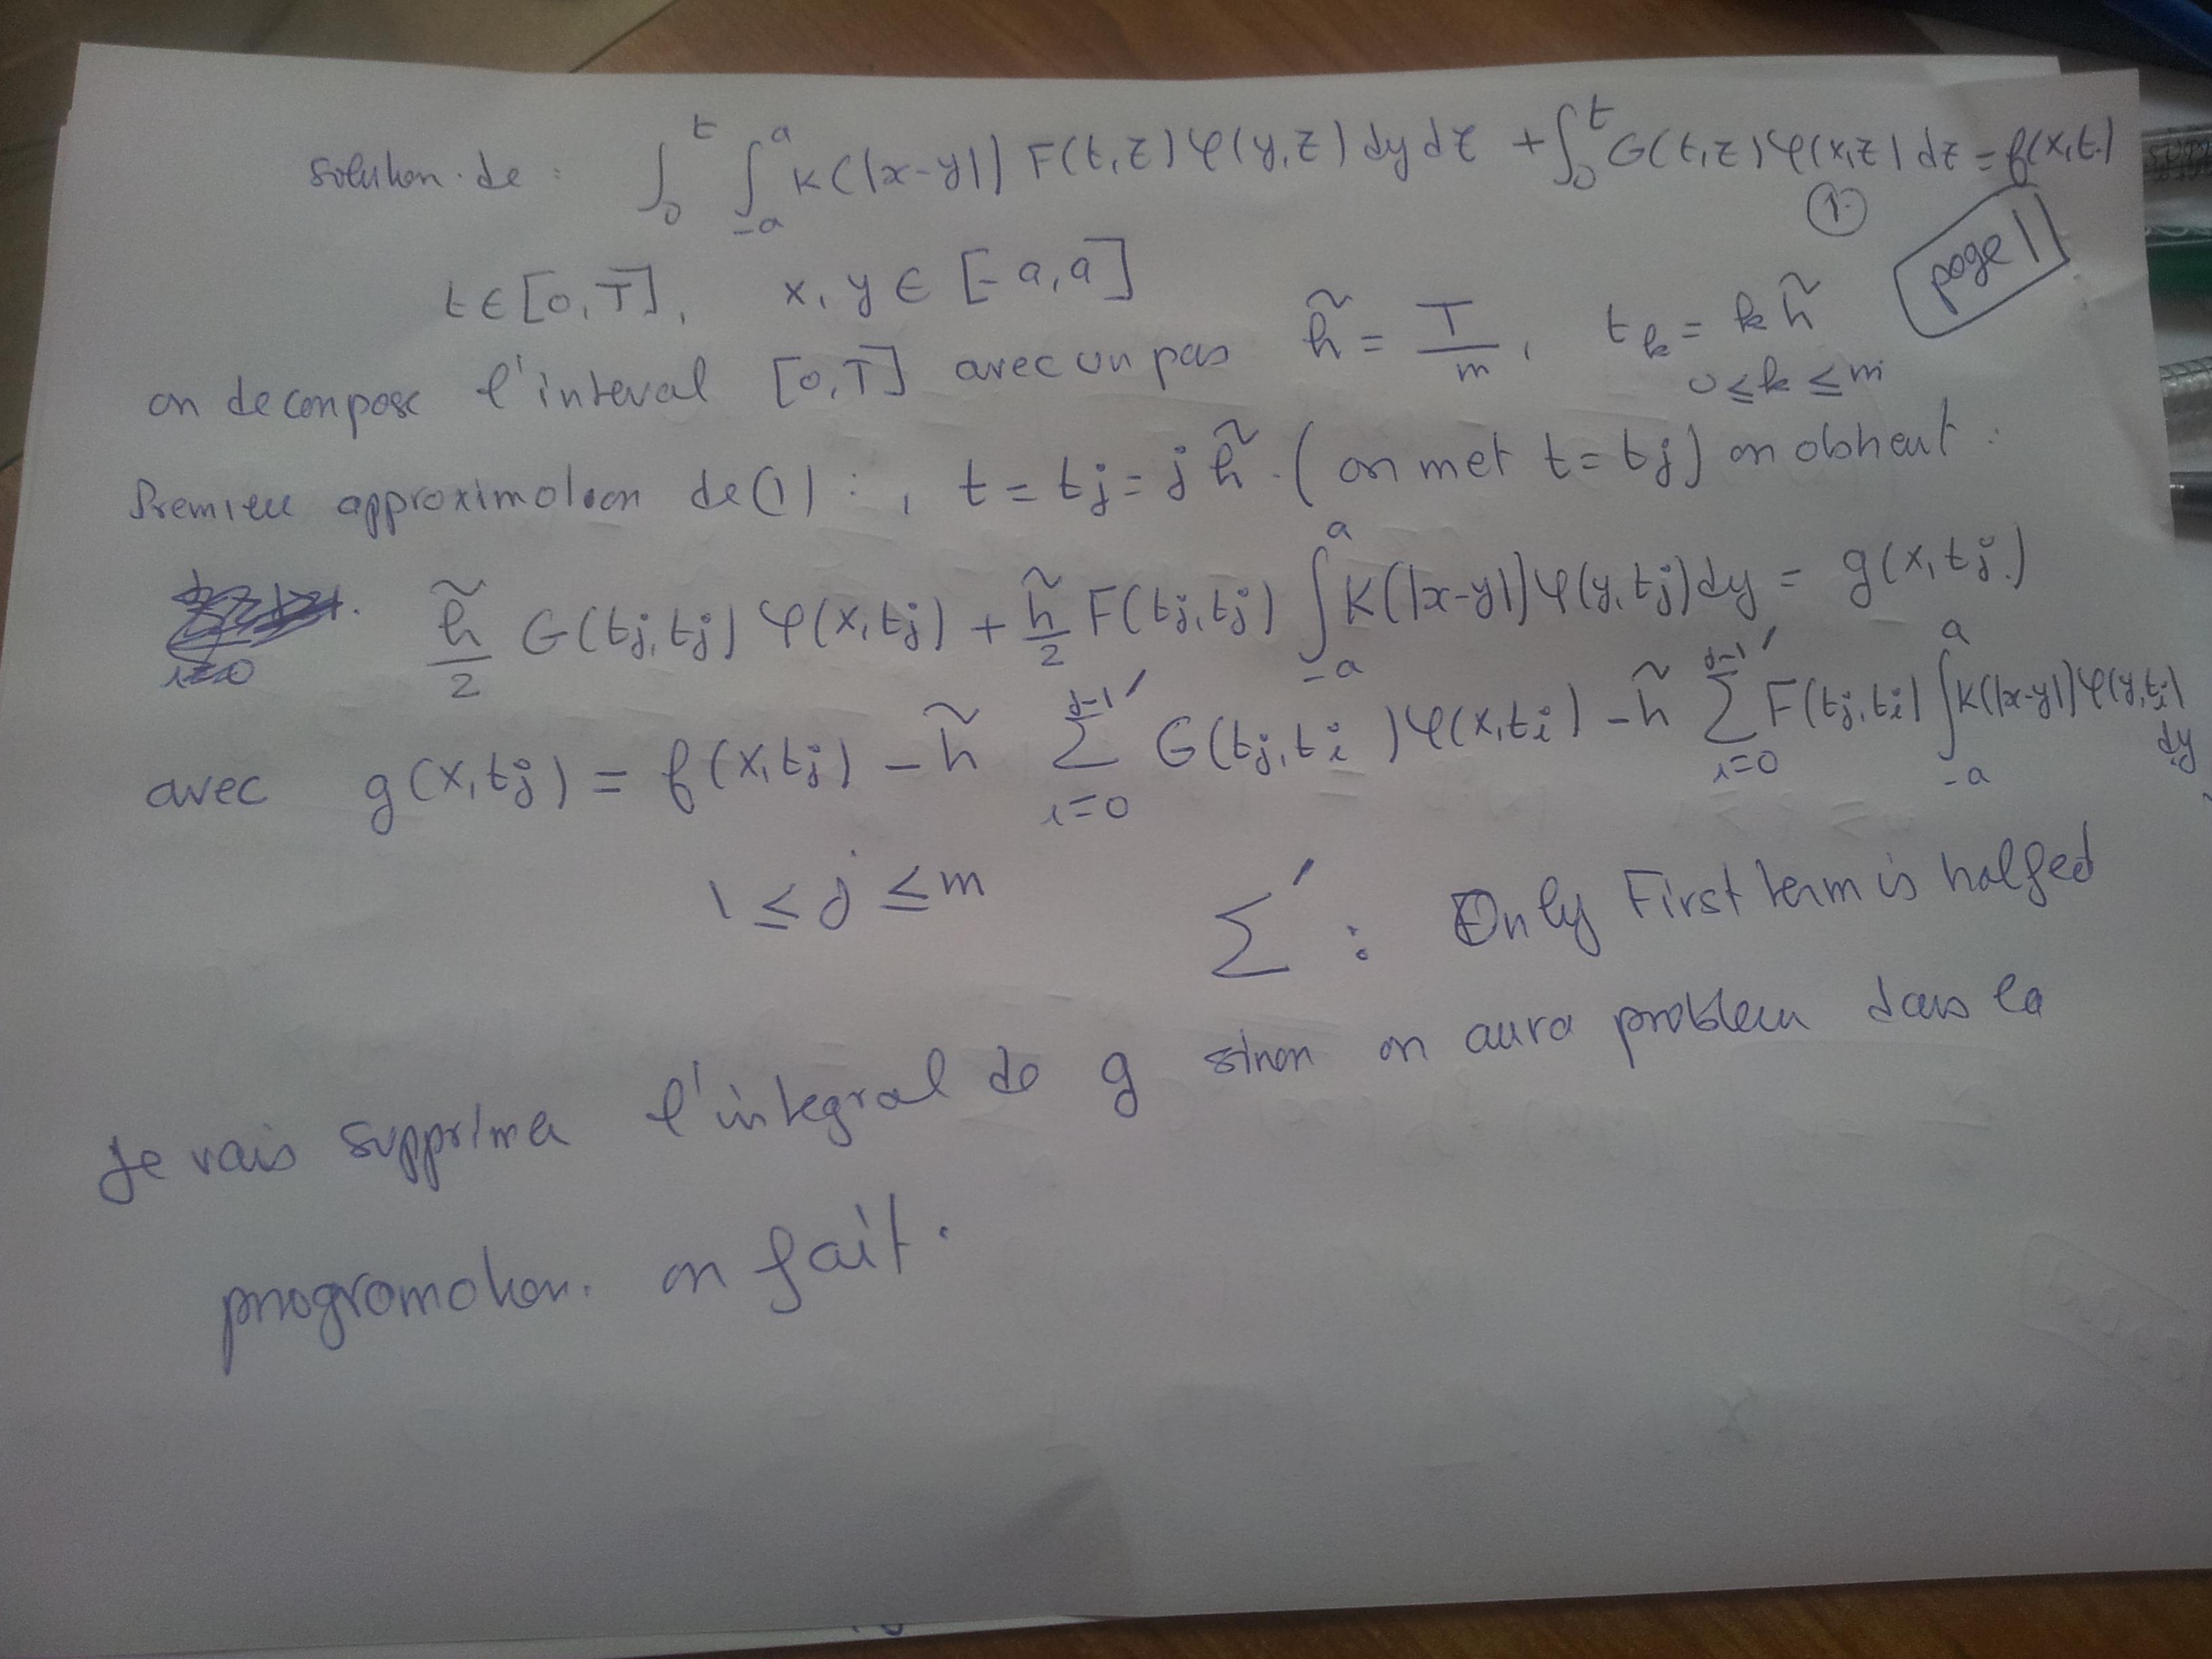 solution de : ∫_0^t ∫_{-a}^a K(|x-y|) F(t,z) φ(y,z) dy dz + ∫_0^t G(t,z) φ(x,z) dz = f(x,t)
①
page 1
t ∈ [0,T], x, y ∈ [-a, a]
on decompose l'interval [0,T] avec un pas h̃ = T/m, t_k = k h̃
0 ≤ k ≤ m
Premiere approximation de (1) : , t = t_j = j h̃ . (on met t = t_j) on obtient :
i=0
h̃/2 G(t_j,t_j) φ(x,t_j) + h̃/2 F(t_j,t_j) ∫_{-a}^a K(|x-y|) φ(y,t_j) dy = g(x,t_j)
avec g(x,t_j) = f(x,t_j) - h̃ Σ'_{i=0}^{j-1} G(t_j,t_i) φ(x,t_i) - h̃ Σ'_{i=0}^{j-1} F(t_j,t_i) ∫_{-a}^a K(|x-y|) φ(y,t_i) dy
1 ≤ j ≤ m Σ' : Only First term is halfed
Je vais supprimer l'integral de g sinon on aura problem dans la
programation. on fait.